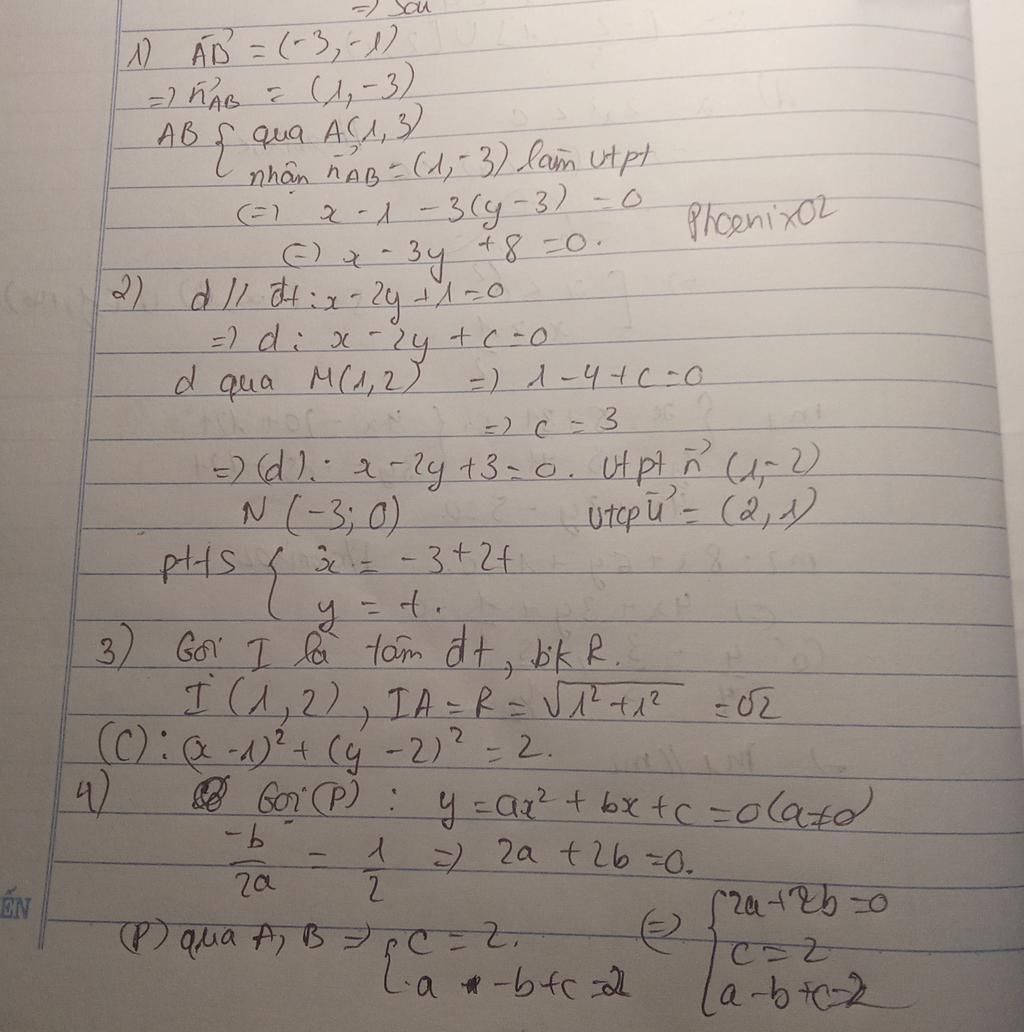 => Sou
1) AB→ = (-3, -1)
=> n→AB = (1, -3)
AB { qua A(1, 3)
nhận n→AB = (1, -3) làm vtpt
(=) x - 1 - 3(y - 3) = 0
Phoenix02
(=) x - 3y + 8 = 0.
2) d // đt : x - 2y + 1 = 0
=> d : x - 2y + c = 0
d qua M(1, 2) => 1 - 4 + c = 0
=> c = 3
=> (d) : x - 2y + 3 = 0. vtpt n→ (1, -2)
N (-3; 0) vtcp u→ = (2, 1)
ptts { x = -3 + 2t
y = t.
3) Gọi I là tâm đt, bk R.
I (1, 2), IA = R = √1² + 1² = √2
(C) : (x - 1)² + (y - 2)² = 2.
4) Gọi (P) : y = ax² + bx + c = 0 (a ≠ 0)
-b/2a = 1/2 => 2a + 2b = 0.
(P) qua A, B => { c = 2. (=) { 2a + 2b = 0
c = 2
a - b + c = 2 a - b + c = 2
ẾN